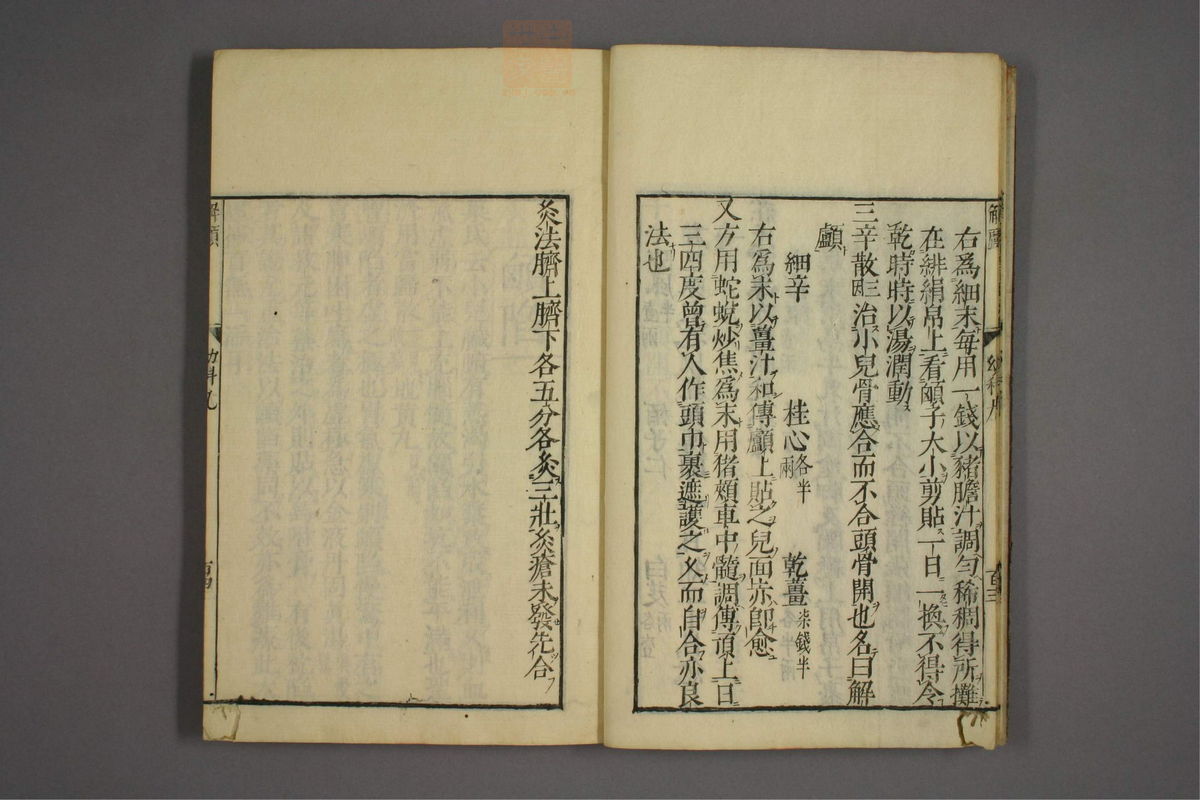 右爲細末每用一錢以豬膽汁調勻稀稠得所攤
在緋絹帛上看顖子大小剪貼一日一換不得令
乾時時以湯潤動
三辛散治小兒骨應合而不合頭骨開也名曰解
顱
細辛 桂心各半兩 乾薑柒錢半
右爲末以薑汁和傅顱上貼之兒面赤卽愈
又方用蛇蛻炒焦爲末用猪頰車中髓調傅頂上日
三四度曾有人作頭巾裹遮護之久而自合亦良
法也
解顱
幼科九
百三
灸法臍上臍下各五分各灸三壯灸瘡未發先合
解顱
幼科九
百四